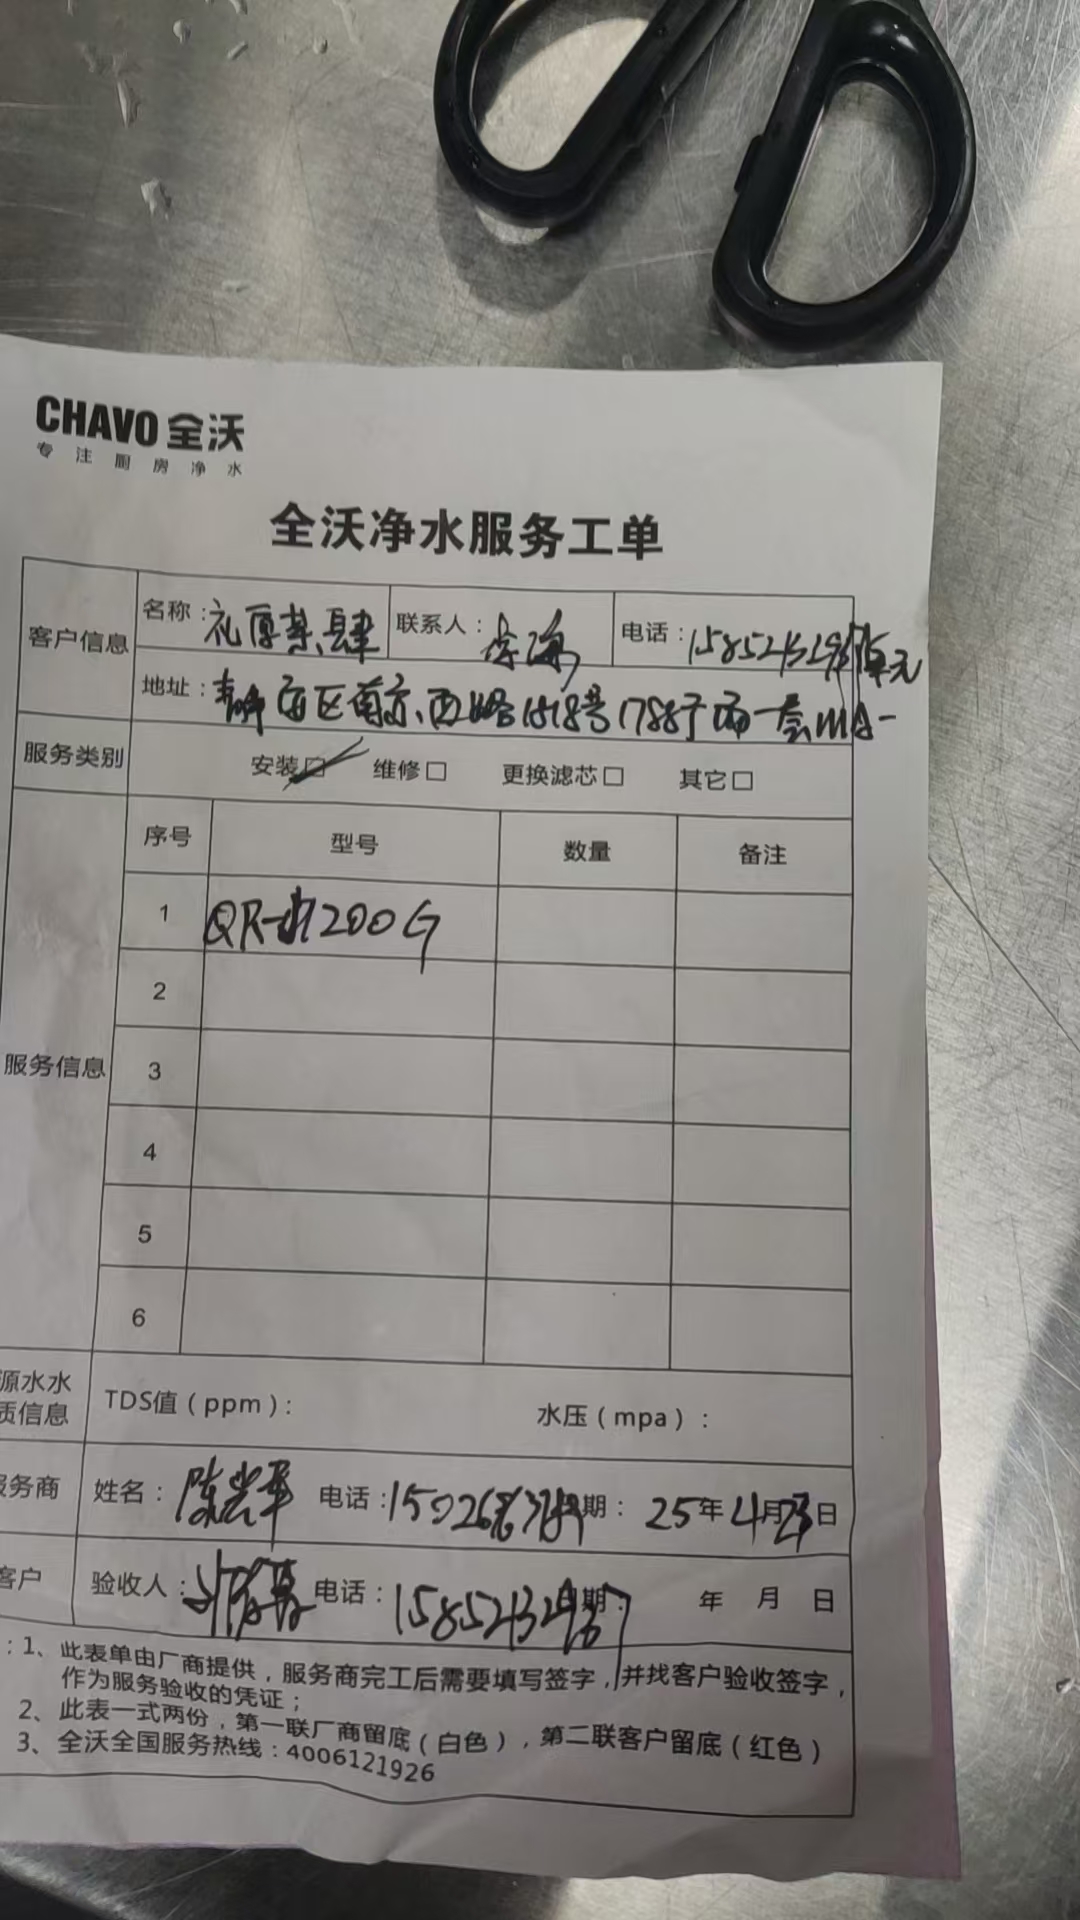 CHAVO 全沃
专注厨房净水
全沃净水服务工单
客户信息 名称：礼厚 肆 联系人： 电话：
地址：静安区南京西路1818号1788 一层
服务类别 安装☐ 维修☐ 更换滤芯☐ 其它☐
序号 型号 数量 备注
1 200G
2
服务信息 3
4
5
6
源水水质信息 TDS值（ppm）： 水压（mpa）：
服务商 姓名：陈 电话： 期： 25年4月 日
客户 验收人： 电话： 期： 年 月 日
：1、此表单由厂商提供，服务商完工后需要填写签字，并找客户验收签字，
作为服务验收的凭证；
2、此表一式两份，第一联厂商留底（白色），第二联客户留底（红色）
3、全沃全国服务热线：4006121926